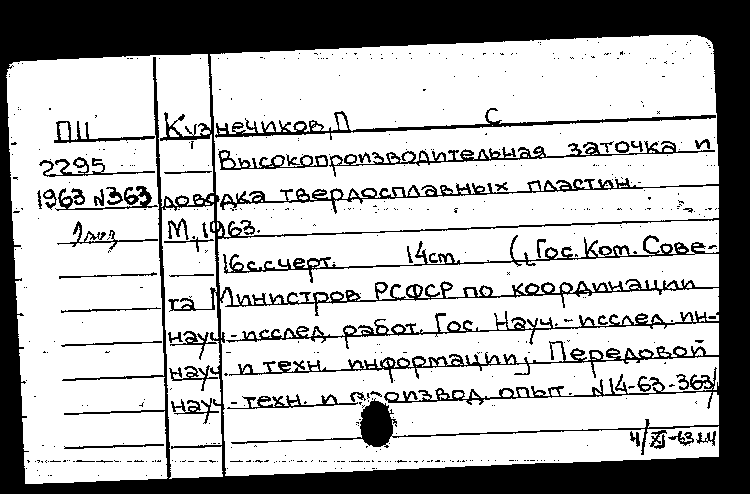 П11 Кузнечиков, П С
2295 Высокопроизводительная заточка и
1963 N363 доводка твердосплавных пластин.
1экз М., 1963.
16с.счерт. 14см. (Гос. Ком. Сове-
та Министров РСФСР по координации
науч.-исслед. работ. Гос. Науч.-исслед. ин-
науч. и техн. информации. Передовой
науч.-техн. и производ. опыт. N14-63-363/
4/XI-63